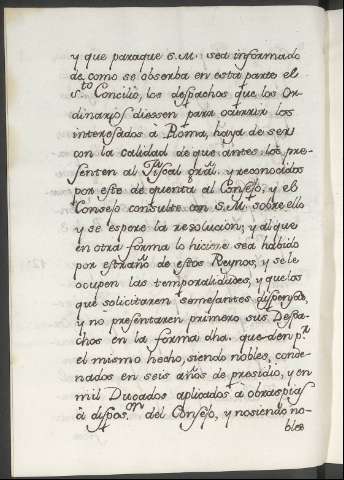 y que paraque S.M. sea informado
de como se obserba en esta parte el
s.to Concilio, los despachos que los Or-
dinarios diessen para ocurrir los
interesados à Roma, haya de ser
con la calidad de que antes los pre-
senten al Fiscal grãl. y reconocidos
por este de quenta al Consejo, y el
Consejo consulte con S.M. sobre ello
y se espere la resolucion; y al que
en otra forma lo hiciere sea habido
por estraño de estos Reynos, y se le
ocupen las temporalidades, y que los
que solicitaren semejantes dispensas,
y no presentaren primero sus Despa-
chos en la forma dha. queden p.r
el mismo hecho, siendo nobles, conde-
nados en seis años de presidio, y en
mil Ducados aplicados à obras pias
à dispos.on del Consejo, y no siendo no-
bles